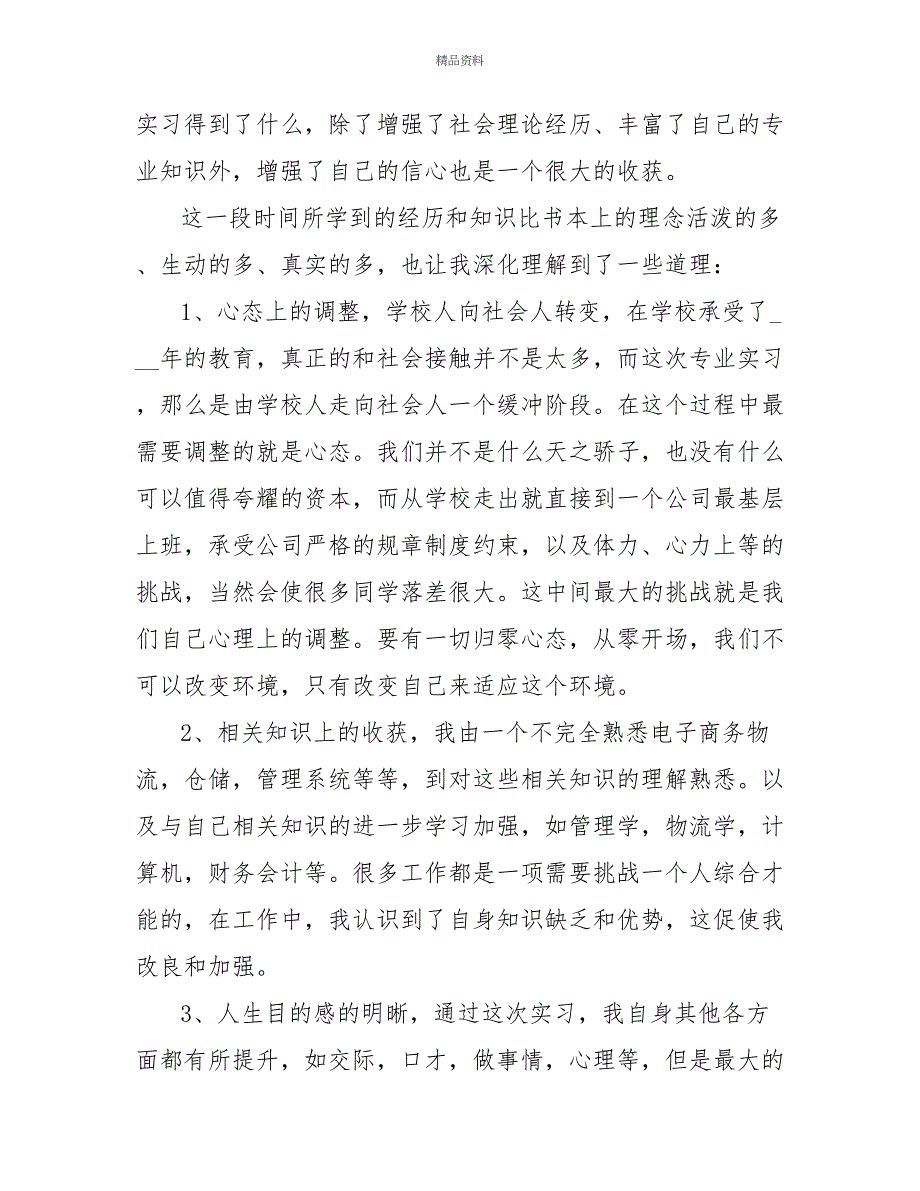 精品资料
实习得到了什么，除了增强了社会理论经历、丰富了自己的专
业知识外，增强了自己的信心也是一个很大的收获。
这一段时间所学到的经历和知识比书本上的理念活泼的多
、生动的多、真实的多，也让我深化理解到了一些道理：
1、心态上的调整，学校人向社会人转变，在学校承受了_
__年的教育，真正的和社会接触并不是太多，而这次专业实习
，那么是由学校人走向社会人一个缓冲阶段。在这个过程中最
需要调整的就是心态。我们并不是什么天之骄子，也没有什么
可以值得夸耀的资本，而从学校走出就直接到一个公司最基层
上班，承受公司严格的规章制度约束，以及体力、心力上等的
挑战，当然会使很多同学落差很大。这中间最大的挑战就是我
们自己心理上的调整。要有一切归零心态，从零开场，我们不
可以改变环境，只有改变自己来适应这个环境。
2、相关知识上的收获，我由一个不完全熟悉电子商务物
流，仓储，管理系统等等，到对这些相关知识的理解熟悉。以
及与自己相关知识的进一步学习加强，如管理学，物流学，计
算机，财务会计等。很多工作都是一项需要挑战一个人综合才
能的，在工作中，我认识到了自身知识缺乏和优势，这促使我
改良和加强。
3、人生目的感的明晰，通过这次实习，我自身其他各方
面都有所提升，如交际，口才，做事情，心理等，但是最大的